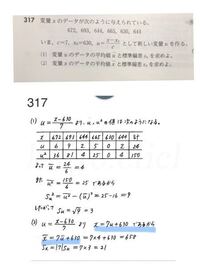 317 変量 x のデータが次のように与えられている。
672, 693, 644, 665, 630, 644
いま, c=7, x₀=630, u=(x-x₀)/c として新しい変量 u を作る。
(1) 変量 u のデータの平均値 ū と標準偏差 sᵤ を求めよ。
(2) 変量 x のデータの平均値 x̄ と標準偏差 sₓ を求めよ。
317
(1) u = (x-630)/7 より, u, u² の値は次のようになる。
x 672 693 644 665 630 644 計
u 6 9 2 5 0 2 24
u² 36 81 4 25 0 4 150
よって ū = 24/6 = 4
また u² = 150/6 = 25 であるから
Su² = u² - (ū)² = 25-16 = 9
Su = √9 = 3
(2) u = (x-630)/7 より x = 7u+630 であるから
x̄ = 7ū+630 = 7×4+630 = 658
Sx = |7|Su = 7×3 = 21